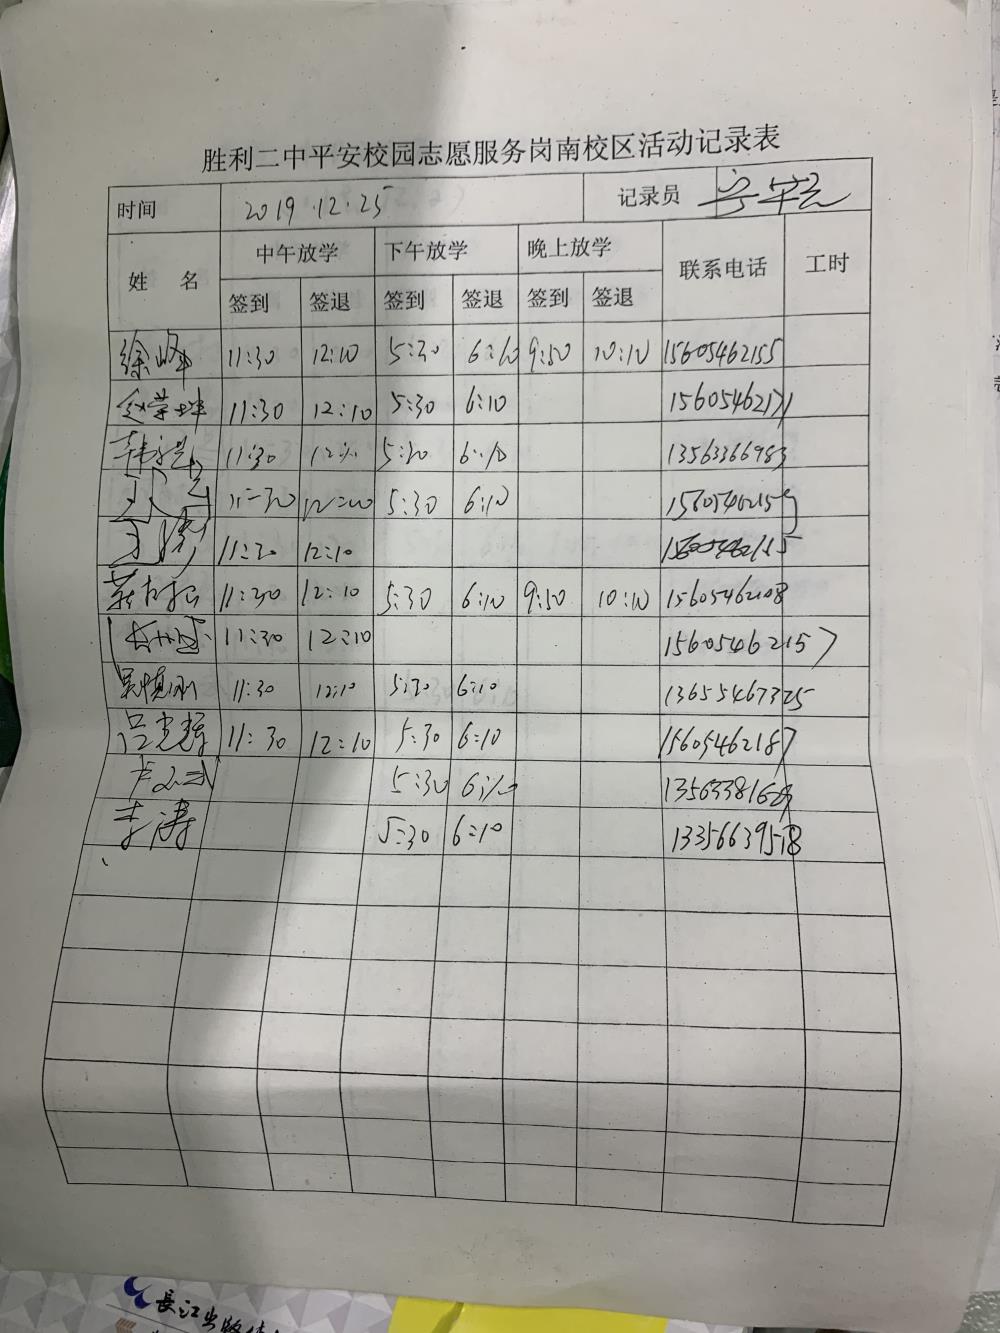 胜利二中平安校园志愿服务岗南校区活动记录表
时间 2019.12.25 记录员
姓 名 中午放学 下午放学 晚上放学 联系电话 工时
签到 签退 签到 签退 签到 签退
徐峰 11:30 12:10 5:30 6:10 9:50 10:10 15605462155
赵荣坤 11:30 12:10 5:30 6:10 15605462171
11:30 12:10 5:30 6:10 13563366983
11:30 12:00 5:30 6:10 15605462159
11:30 12:10 15605462155
11:30 12:10 5:30 6:10 9:50 10:10 15605462108
11:30 12:10 15605462157
11:30 12:10 5:30 6:10 13655467325
吕光辉 11:30 12:10 5:30 6:10 15605462187
5:30 6:10
李涛 5:30 6:10 13356639518
長江出版传